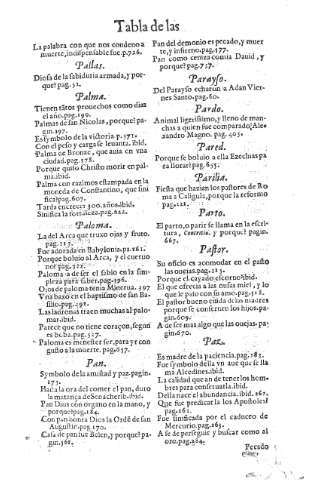 Tabla de las
La palabra con que nos condeno a
muerte, indispensable fue. p.726.
Pallas.
Diosa de la sabiduria armada, y por-
que? pag.51.
Palma.
Tienen tãtos prouechos como dias
el año. pag.199.
Palmas de san Nicolas, porque? pa-
gin.197.
Es symbolo de la victoria. p.571.
Con el peso y carga se leuanta. ibid.
Palma de Bronze, que auia en vna
ciudad. pag.578.
Porque quiso Christo morir en pal-
ma. ibid.
Palma con razimos estampada en la
moneda de Constantino, que sini
fica? pag.607.
Tarda en crecer 300. años. ibid.
Sinifica la fortaleza. pag.
Paloma.
La del Arca que truxo ojos y fruto.
pag.115.
Fue adorada en Babylonia. pa.261.
Porque boluio al Arca, y el cueruo
no? pag.
Paloma a de ser el sabio en la sim-
pleza para saber. pag.596.
Ojos de paloma tenia Materua. 297
Vna baxo en el baptismo de san Ba-
silio. pag.592.
Las ladronas traen muchas al palo-
mar. ibid.
Parece que no tiene coraçon, segun
es boba. pag.527.
Paloma es menester ser, para yr con
gusto a la muerte. pag.657.
Pan.
Symbolo de la amistad y paz. pagin.
175.
Hazia la ora del comer el pan, duro
la matança de Senacherib. ibid.
Pan Dios con organo en la mano, y
porque? pag.184.
Con pan beneá Dios la Ordẽ de san
Augustin. pag.170.
Casa de pan fue Belen, y porque? pa-
gin.368.
Pan del demonio es pecado, y muer
te, y infierno. pag.177.
Pan como ceniza comia Dauid, y
porque? pag.757.
Parayso.
Del Parayso echaron a Adan Vier-
nes Santo. pag.60.
Pardo.
Animal ligerissimo, y lleno de man-
chas a quien fue comparado Ale-
xandro Magno. pag. 405.
Pared.
Porque se boluio a ella Ezechias pa
ra llorar? pag.655.
Parilia.
Fiesta que hazian los pastores de Ro
ma a Caligula, porque la reformo
pag.121.
Parto.
El parto, o parir se llama en la escri-
tura, Contritio, y porque? pagin.
667.
Pastor.
Su oficio es acomodar en el pasto
sus ouejas. pag.115.
Porque el cayado es corno? ibid.
El que ofrecia a las ninfas miel, y lo
que le paso con su amo. pag.118.
El pastor bueno cuida de las madres
porque se conseruen los hijos. pa-
gin.609.
A de ser mas algo que las ouejas. pa-
gin.670.
Paz.
Es madre de la paciencia. pag.183.
Fue symbolo della vn aue que se lla
ma Alcedines. ibid.
La calidad que an de tener los hom-
bres para conseruarla. ibid.
Della nace el abundancia. ibid. 262.
Que fue predicar la los Apostoles?
pag.261.
Fue sinificada por el caduceo de
Mercurio. pag.265.
A se de perseguir y buscar como al
oro. pag.264.
Pecado